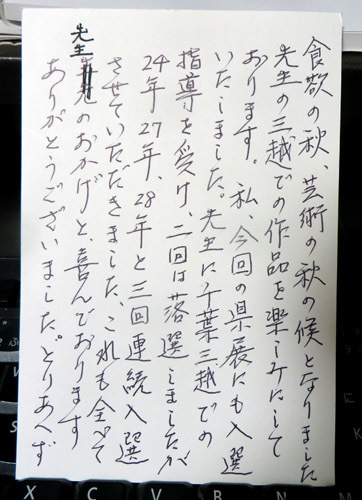 食欲の秋、芸術の秋の候となりました
先生の三越での作品を楽しみにして
おります。私、今回の県展にも入選
いたしました。先生に千葉三越での
指導を受け、二回は落選しましたが
24年27年、28年と三回連続入選
させていただきました、これも全べて
先生のおかげと、喜んでおります
ありがとうございました。とりあへず
X C V B N